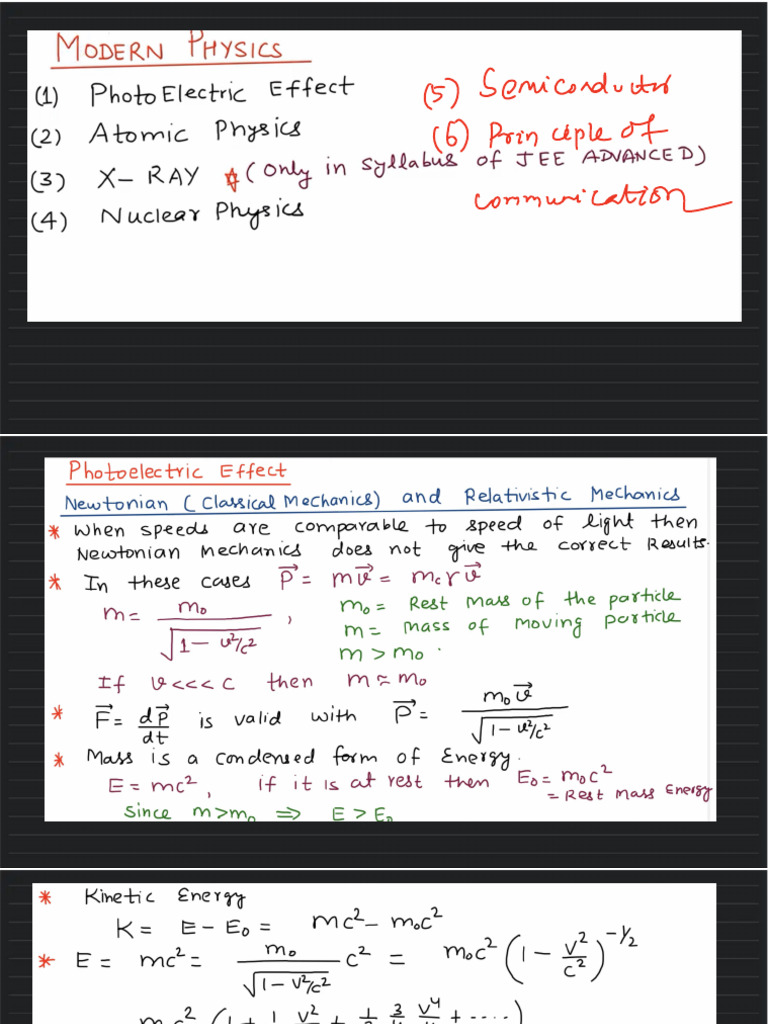 MODERN PHYSICS
(1) PhotoElectric Effect
(2) Atomic Physics
(3) X-RAY (Only in Syllabus of JEE ADVANCED)
(4) Nuclear Physics
(5) Semiconductor
(6) Principle of
communication
Photoelectric Effect
Newtonian (Classical Mechanics) and Relativistic Mechanics
* When speeds are comparable to speed of light then
Newtonian Mechanics does not give the correct Results.
* In these cases P⃗ = mv⃗ = m₀γv⃗
m = m₀/√(1 - v²/c²) ,
m₀ = Rest Mass of the particle
m = Mass of moving particle
m > m₀ .
If v <<< c then m ≈ m₀
* F⃗ = dP⃗/dt is valid with P⃗ = m₀v⃗/√(1 - v²/c²)
* Mass is a condensed form of Energy.
E = mc², if it is at rest then E₀ = m₀c²
= Rest Mass Energy
Since m > m₀ ⇒ E > E₀
* Kinetic Energy
K = E - E₀ = mc² - m₀c²
* E = mc² = m₀/√(1 - v²/c²) c² = m₀c² (1 - v²/c²)^(-1/2)